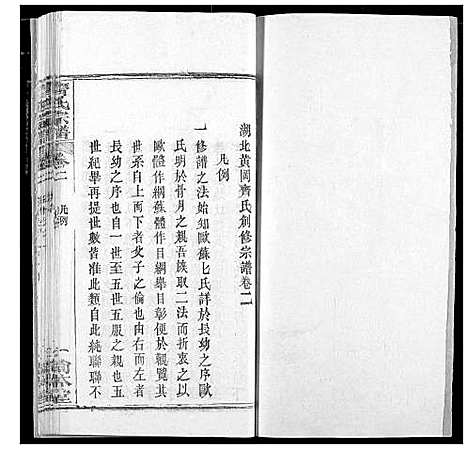 湖北黃岡齊氏創修宗譜卷二
凡例
一修譜之法始如歐蘇七氏詳於長幼之序歐
氏明於骨月之親吾族取二法而折衷之以
歐體作綱蘇體作目綱舉目彰便於觀覽其
世系自上而下者父子之倫也由右而左者
長幼之序也自一世至五世五服之親也五
世紀畢再提世數皆准此類自此統聯聯不
齊氏宗譜
卷二
凡例
一
堂